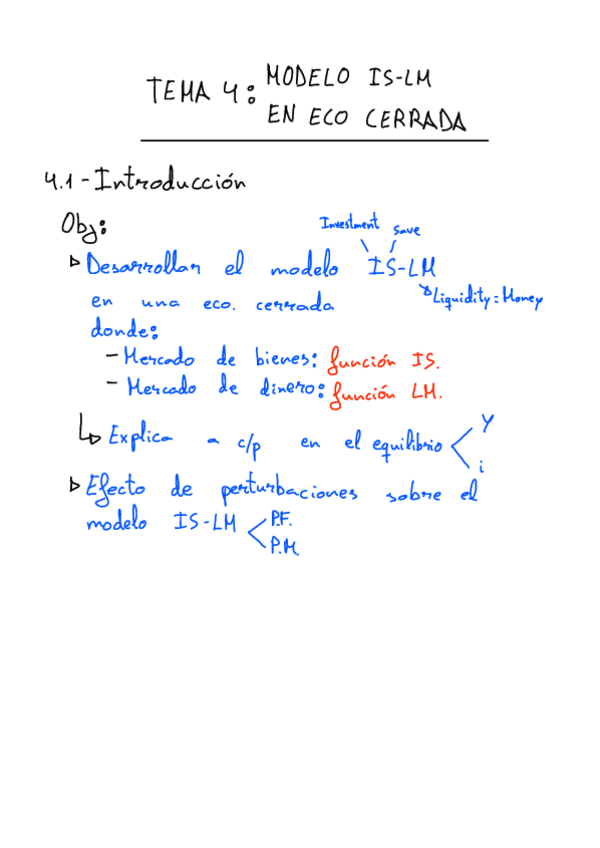 TEMA 4: MODELO IS-LM
EN ECO CERRADA
4.1 - Introducción
Obj:
Investment Save
▷ Desarrollar el modelo IS-LM
Liquidity = Money
en una eco. cerrada
donde:
- Mercado de bienes: función IS.
- Mercado de dinero: función LM.
↳ Explica a c/p en el equilibrio < Y
i
▷ Efecto de perturbaciones sobre el
modelo IS-LM < P.F.
P.M.